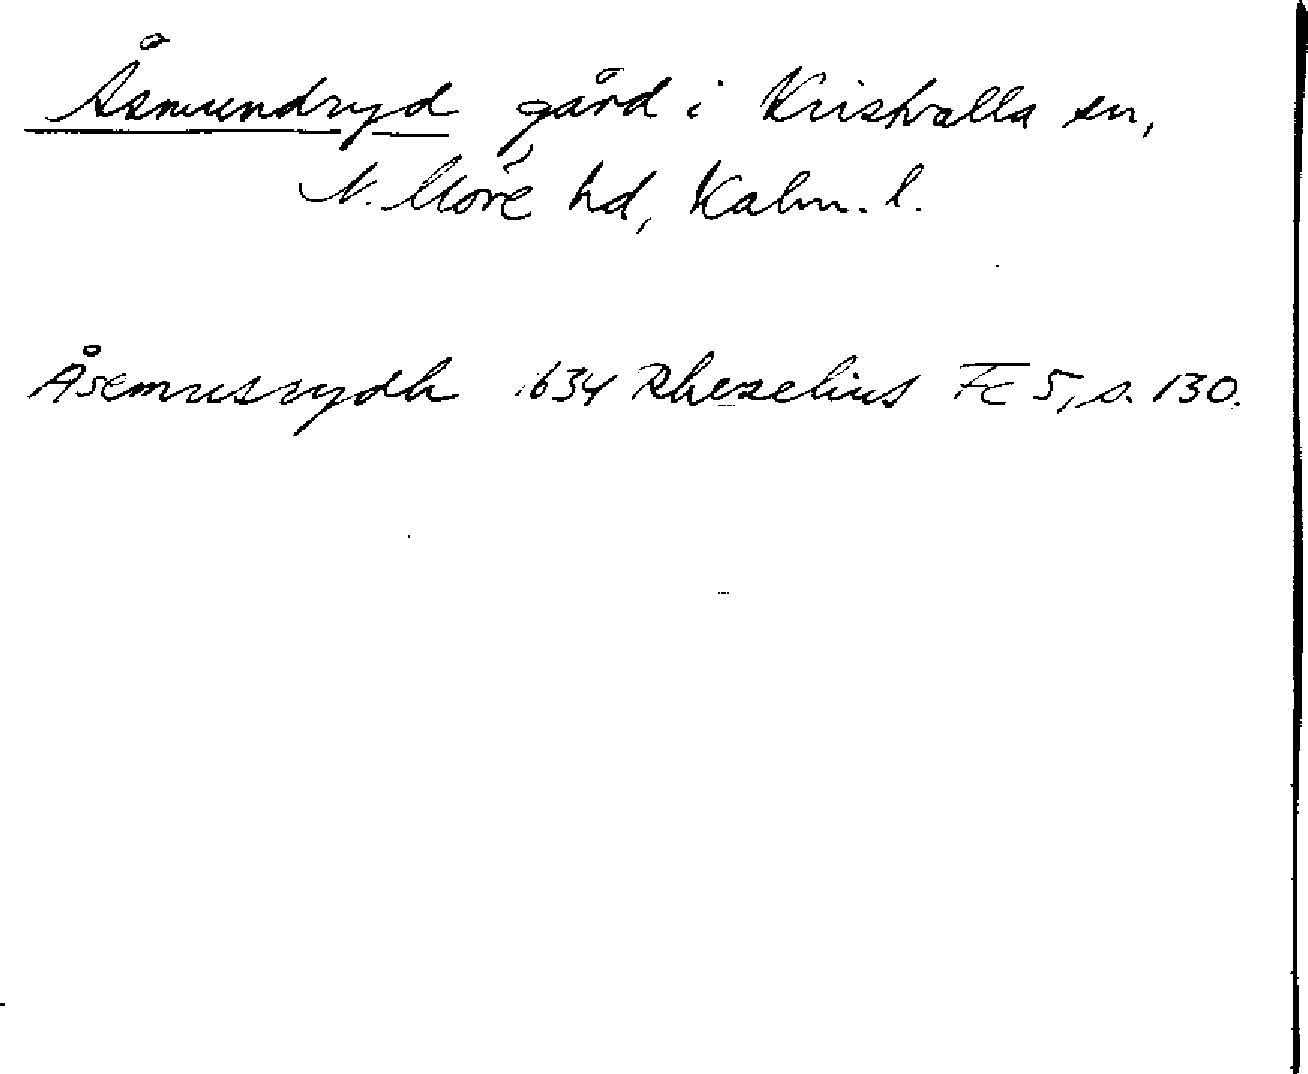 Åsmundryd gård i Kristvalla sn,
N. Möre hd, Kalm. l.
Åsemussrydh 1634 Rhezelius Fc 5, s. 130.